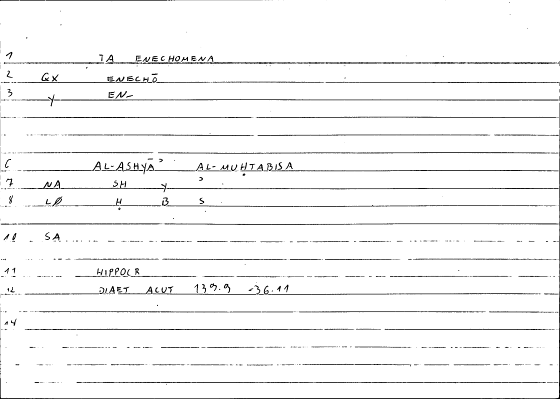 1 TA ENECHOMENA
2 GX ENECHŌ
3 y EN-
6 AL-ASHYĀʾ AL-MUḤTABISA
7 NA SH y ʾ
8 LØ Ḥ B S
10 SA
11 HIPPOCR
12 DIAET ACUT 139.9 -36.11
14